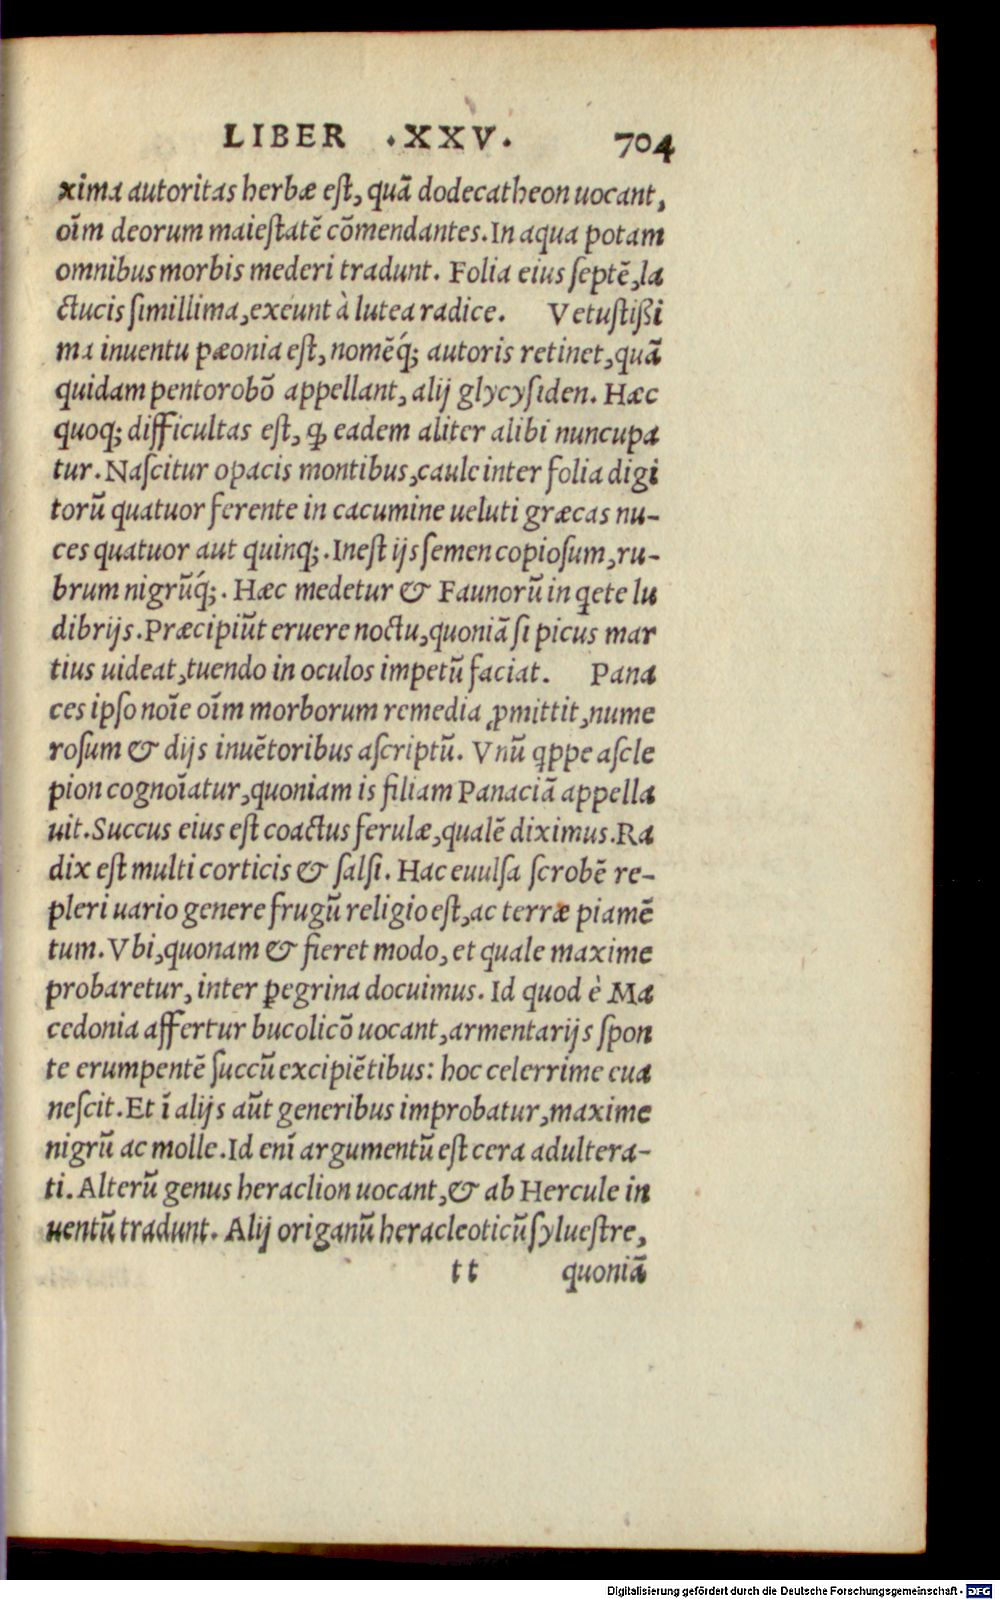 LIBER .XXV. 704
xima autoritas herbæ eſt, quā dodecatheon uocant,
oīm deorum maieſtatē cōmendantes. In aqua potam
omnibus morbis mederi tradunt. Folia eius ſeptē, la
ctucis ſimillima, exeunt à lutea radice. Vetuſtißi
ma inuentu pæonia eſt, nomēq́; autoris retinet, quā
quidam pentorobō appellant, alij glycyſiden. Hæc
quoq; difficultas eſt, ꝙ eadem aliter alibi nuncupa
tur. Naſcitur opacis montibus, caule inter folia digi
torū quatuor ferente in cacumine ueluti græcas nu-
ces quatuor aut quinq;. Ineſt ijs ſemen copioſum, ru-
brum nigrūq́;. Hæc medetur & Faunorū in q̇ete lu
dibrijs. Præcipiūt eruere noctu, quoniā ſi picus mar
tius uideat, tuendo in oculos impetū faciat. Pana
ces ipſo noīe oīm morborum remedia ꝓmittit, nume
roſum & dijs inuētoribus aſcriptū. Vnū q̇ppe aſcle
pion cognoīatur, quoniam is filiam Panaciā appella
uit. Succus eius eſt coactus ferulæ, qualē diximus. Ra
dix eſt multi corticis & ſalſi. Hac euulſa ſcrobē re-
pleri uario genere frugū religio eſt, ac terræ piamē
tum. Vbi, quonam & fieret modo, et quale maxime
probaretur, inter ꝑegrina docuimus. Id quod è Ma
cedonia affertur bucolicō uocant, armentarijs ſpon
te erumpentē ſuccū excipiētibus: hoc celerrime eua
neſcit. Et ī alijs aūt generibus improbatur, maxime
nigrū ac molle. Id enī argumentū eſt cera adultera-
ti. Alterū genus heraclion uocant, & ab Hercule in
uentū tradunt. Alij origanū heracleoticū ſylueſtre,
tt quoniā
Digitalisierung gefördert durch die Deutsche Forschungsgemeinschaft - DFG